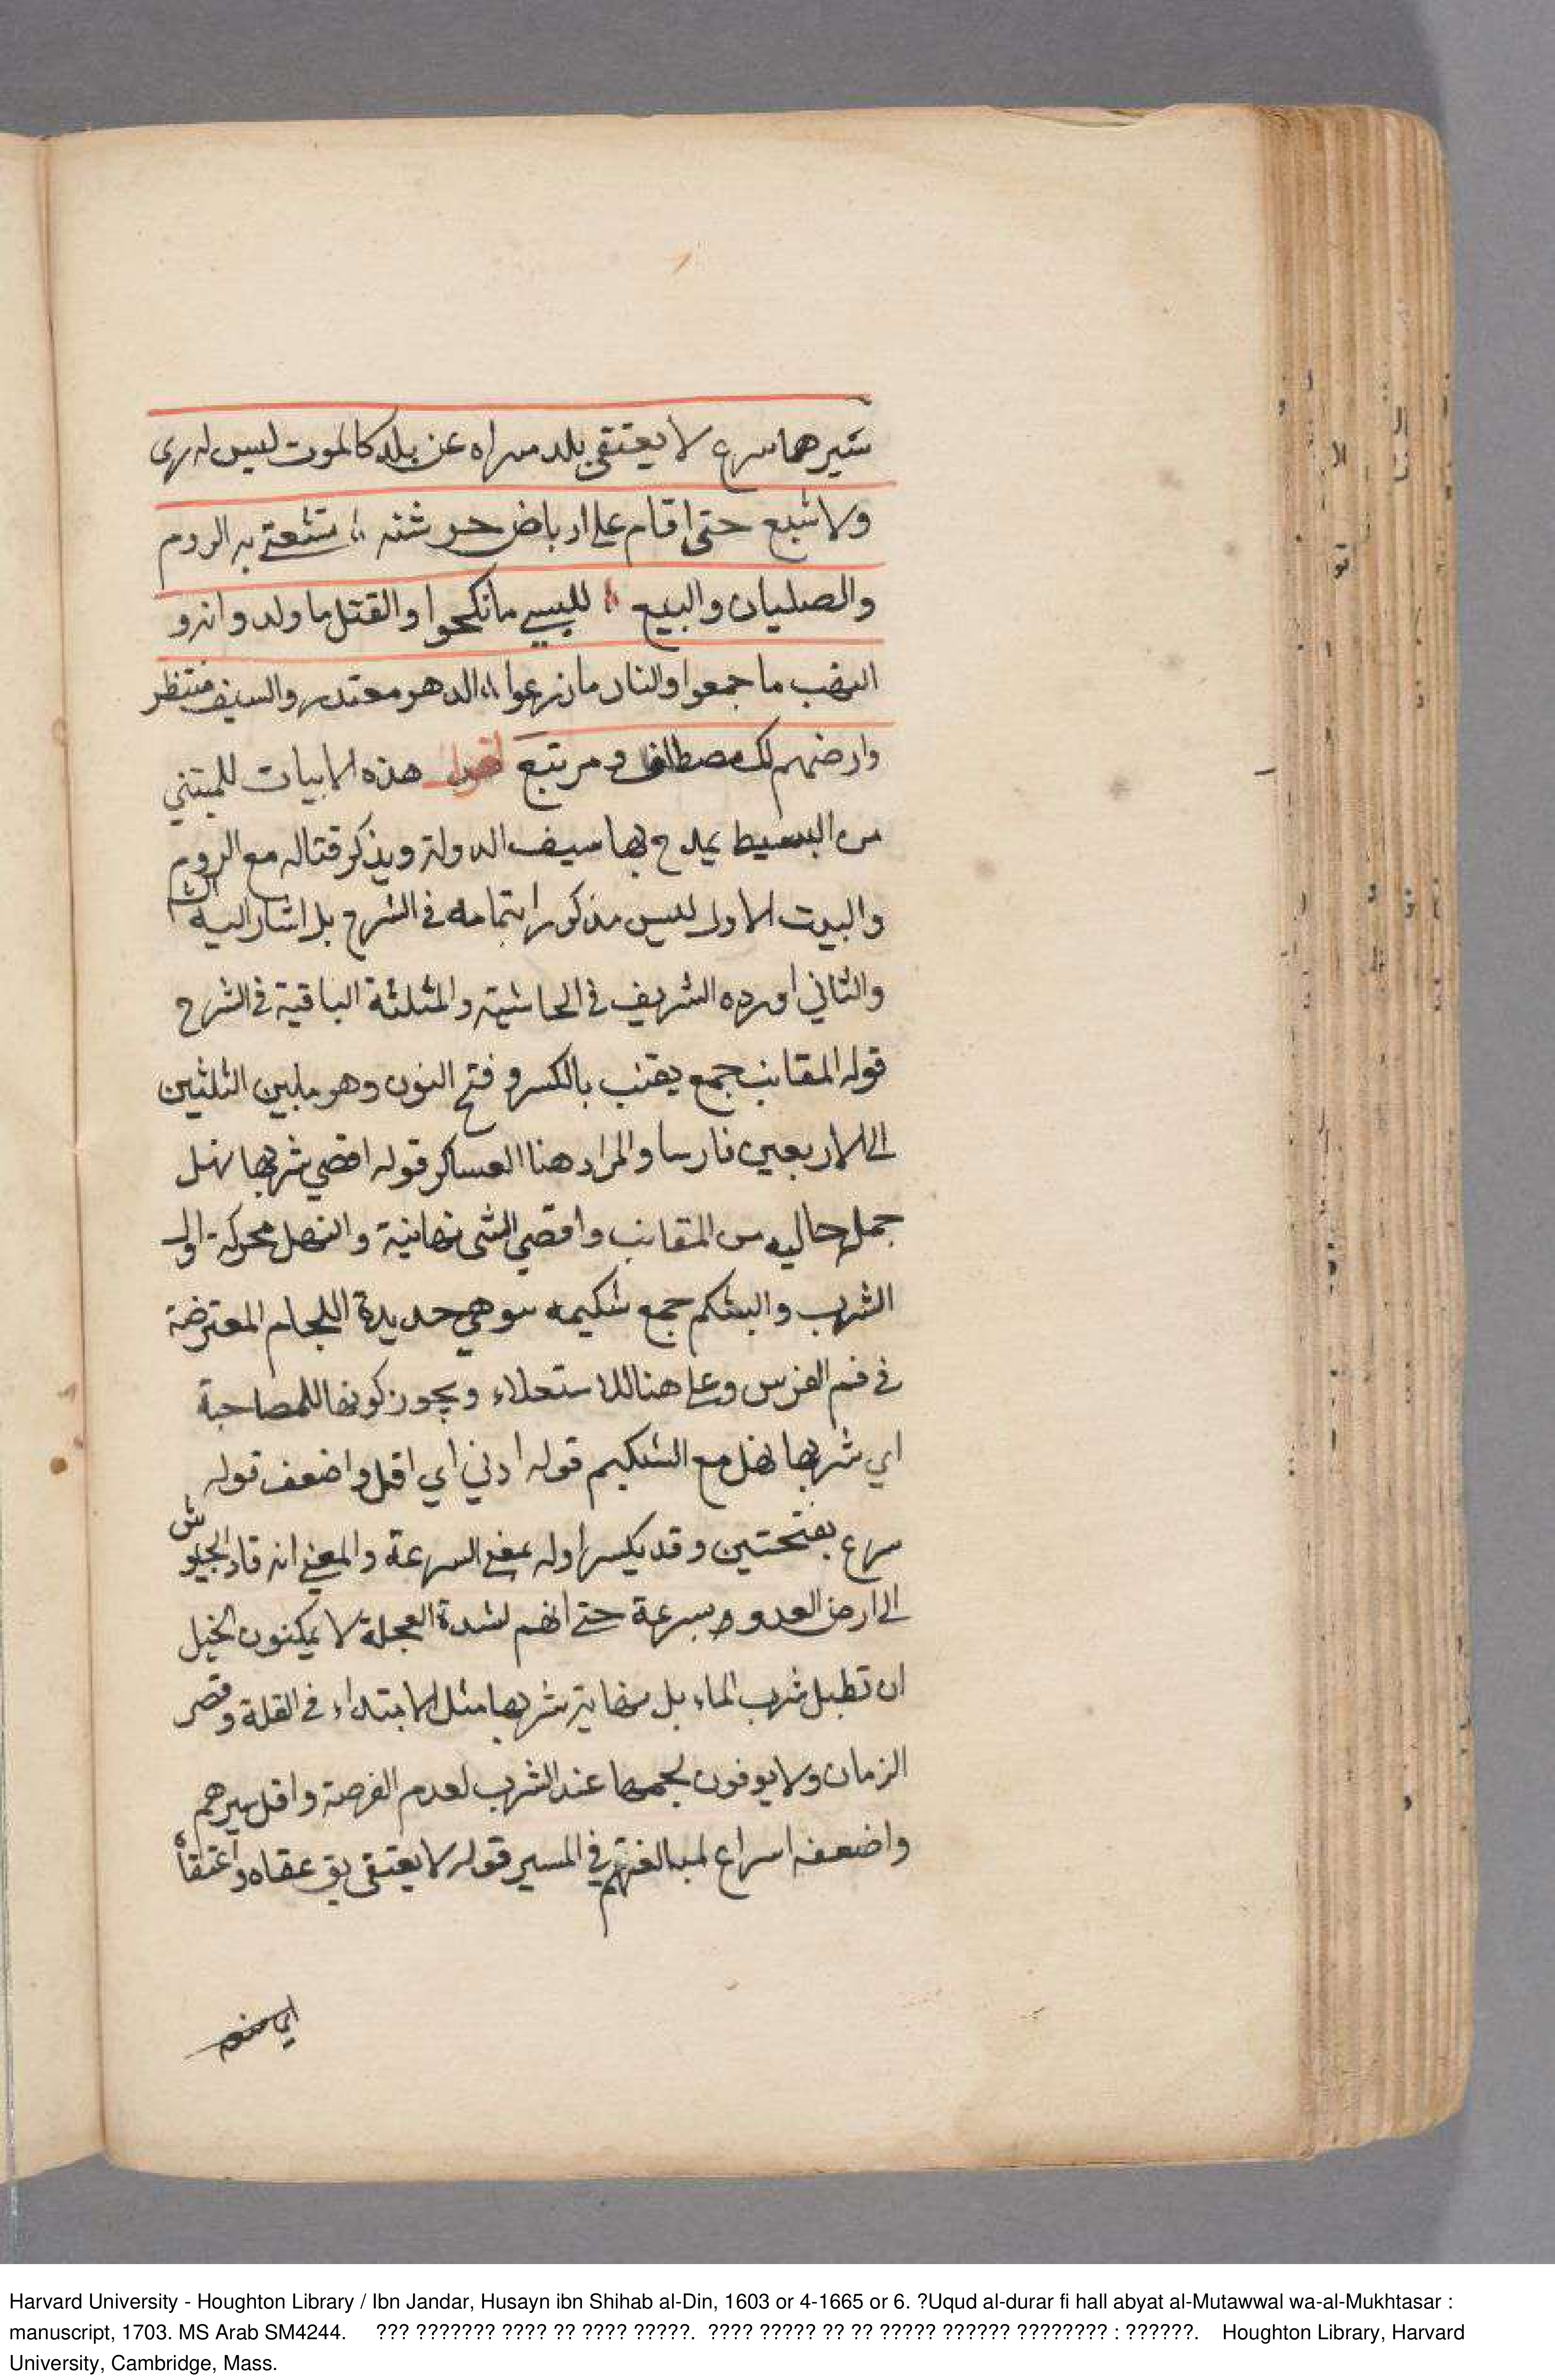 سيرها سرع لا يعتقى بلد مسراه عن بلد كالموت ليس له رى
ولا شبع حتى اقام على ارباض خرشنه تشقى به الروم
والصلبان والبيع للسبي ما نكحوا والقتل ما ولدوا نرو
النهب ما جمعوا والنار ما زرعوا الدهر معتذر والسيف منتظر
وارضهم لك مصطاف و مرتبع اقول هذه الابيات للمتنبي
من البسيط يمدح بها سيف الدولة ويذكر قتاله مع الروم
والبيت الاول ليس مذكورا بتمامه في الشرح بل اشار اليه الش
والثاني اورده الشريف في الحاشية والثلثة الباقية في الشرح
قوله المقانب جمع يقنب بالكسر و فتح النون وهو ما بين الثلثين
الى الاربعين فارسا والمراد هنا العساكر قوله اقصي شربها نهل
جمله حاليه من المقانب واقصي الشى نهانية والنهل محركة اول
الشرب والشكم جمع شكيمه وهي حديدة اللجام المعترضة
في فم الفرس وعلى هنا للاستعلاء ويجوز كونها للمصاحبة
اي شربها نهل مع الشكيم قوله ادني اي اقل واضعف قوله
سرع بفتحتين وقد يكسر اوله بمعنى السرعة والمعنى انه قاد الجيوش
الى ارض العدو بسرعة حتى انهم لشدة العجلة لا يمكنون الخيل
ان تطيل شرب الماء بل نهاية شربها مثل الابتداء في القلة وقصر
الزمان ولا يوفون لجمها عند الشرب لعدم الفرصة واقل سيرهم
واضعفه اسراع لمبالغتهم في المسير قوله لا يعتقى يق عقاه واعتقاه
Harvard University - Houghton Library / Ibn Jandar, Husayn ibn Shihab al-Din, 1603 or 4-1665 or 6. ?Uqud al-durar fi hall abyat al-Mutawwal wa-al-Mukhtasar :
manuscript, 1703. MS Arab SM4244. ??? ??????? ???? ?? ???? ?????. ???? ????? ?? ?? ????? ?????? ???????? : ??????. Houghton Library, Harvard
University, Cambridge, Mass.